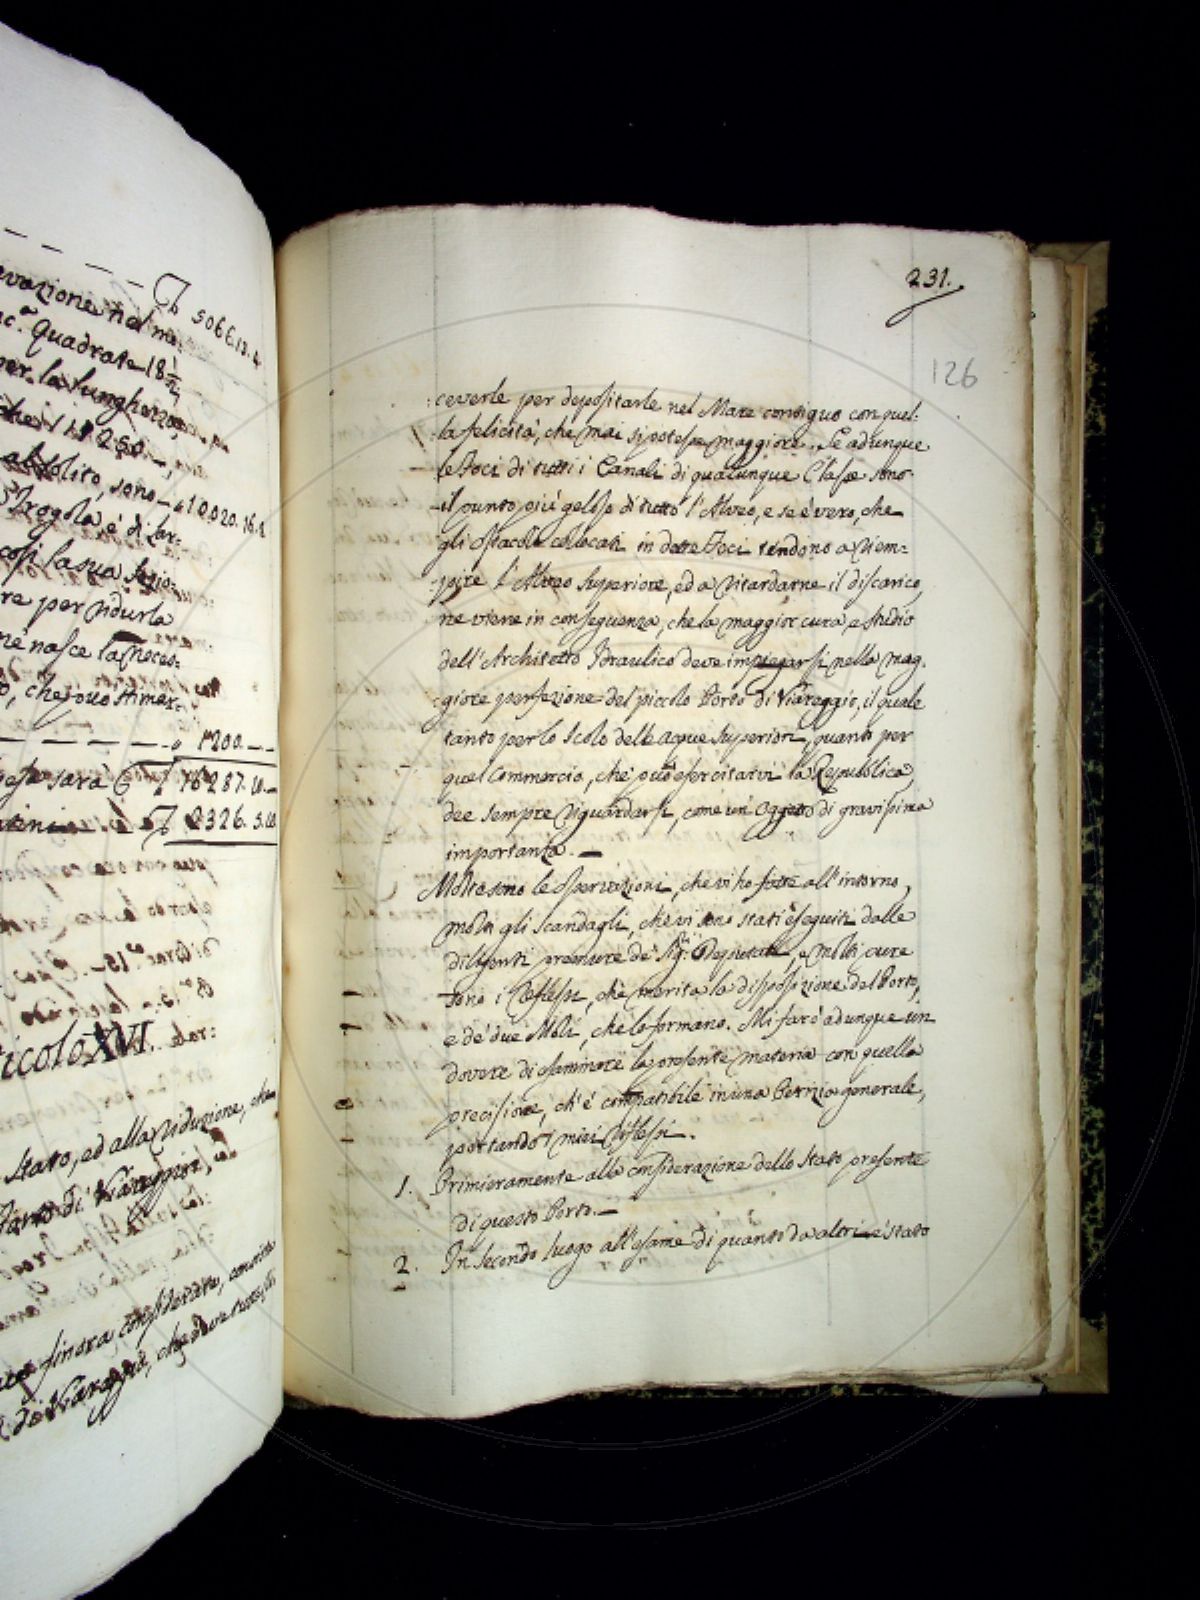 _ _ _ _ _ ₶ 5066.13.4
evazione nel me:
ac.ª quadrate 18 1/2
per la lunghezza
che 1 250
al solito, sono _ " 10020.16.8
Brogola, è di lar:
così la sua sezio:
re per ridurla
ne nasce la neces:
o, che può stimar:
_ _ _ _ _ " 1200. _ _
pesa sarà ₶ 16287.10._
₶ 2326.5.10
ticolo XVI.
Stato, ed alla riduzione, che
Porto di Viareggio,
finora considerato, consiste
di Viareggio, che deve
231.
126
ceverle per depositarle nel Mare contiguo con quel:
:la felicità, che mai si potesse maggiore. Se adunque
le Foci di tutti i Canali di qualunque Classe sono
il punto più geloso di tutto l'Alveo, e se è vero, che
gli Ostacoli colocati in dette Foci tendono a riem=
:pire l'Alveo Superiore, ed a ritardarne il discarico,
ne viene in conseguenza, che la maggior cura, e studio
dell'Architetto Idraulico deve impiegarsi nella mag:
:giore perfezione del piccolo Porto di Viareggio, il quale
tanto per lo Scolo delle acque Superiori, quanto per
quel Commercio, che può esercitarvi la Repubblica,
dee sempre riguardarsi, come un Oggetto di gravissima
importanza. _
Molte sono le Osservazioni, che vi ho fatte all'intorno,
molti gli scandagli, che vi sono stati eseguiti dalle
diligenti premure de' Sig.ri Deputati, e molti pure
sono i Riflessi, che merita la disposizione del Porto,
e de' due Moli, che lo formano. Mi farò adunque un
dovere di esaminare la presente materia con quella
precisione, ch'è compatibile in una Perizia generale,
portando i miei riflessi.
1. Primieramente alla considerazione dello Stato presente
di questo Porto. _
2. In Secondo luogo all'esame di quanto da altri è stato